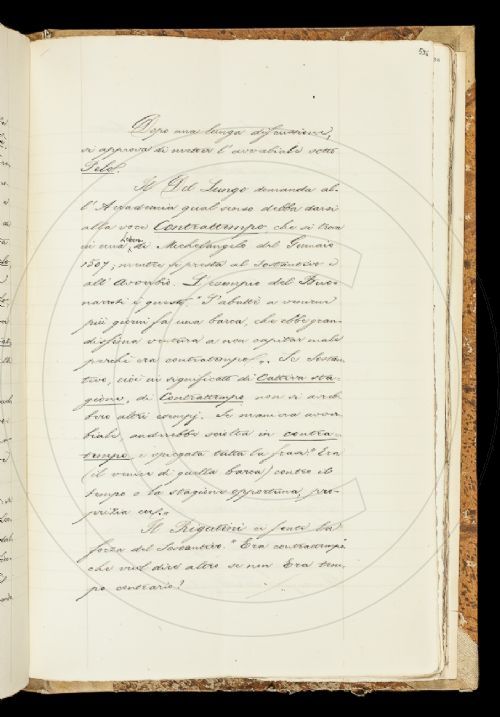 Dopo una lunga discussione,
si approva di metter l'avverbiale sotto
Pelo.
Il Del Lungo domanda al-
l'Accademia qual senso debba darsi
alla voce Contrattempo che si trova
in una Lettera di Michelangelo del Gennaio
1507, mentre si presta al sostantivo e
all'avverbio. L'esempio del Buo-
narroti è questo "S'abbattè a venirne
più giorni fa una barca, che ebbe gran-
dissima ventura a non capitar male
perchè era contratempo". Se Sostan-
tivo, cioè in significato di Cattiva sta-
gione, di Contrattempo non si avreb-
bero altri esempj. Se maniera avver-
biale andrebbe sciolta in contra
tempo, e spiegata tutta la frase "Era
(il venire di quella barca) contro il
tempo o la stagione opportuna, pro-
pizia ec."
Il Rigutini ci sente la
forza del Sostantivo. "Era contrattempo
che vuol dire altro se non Era tem-
po contrario?